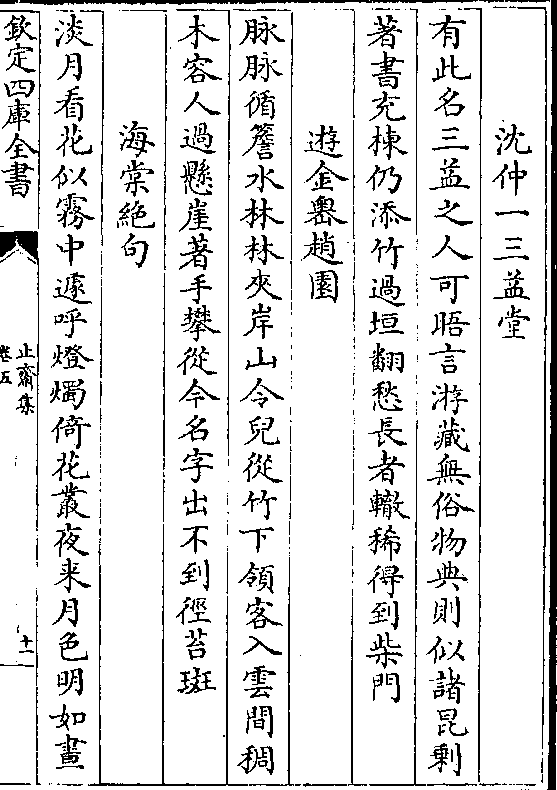 沈仲一三益堂
有此名三益之人可晤言游藏無俗物典則似諸昆剩
著書充棟仍添竹過垣翻愁長者轍稀得到柴門
遊金嶴趙園
脉脉循簷水林林夾岸山令兒從竹下領客入雲間稠
木容人過懸崖著手攀從今名字出不到徑苔斑
海棠絶句
淡月看花似霧中遽呼燈燭倚花叢夜来月色明如晝
欽定四庫全書
止齋集
卷五
十一